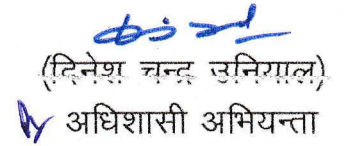 (दिनेश चन्द्र उनियाल)
अधिशासी अभियन्ता